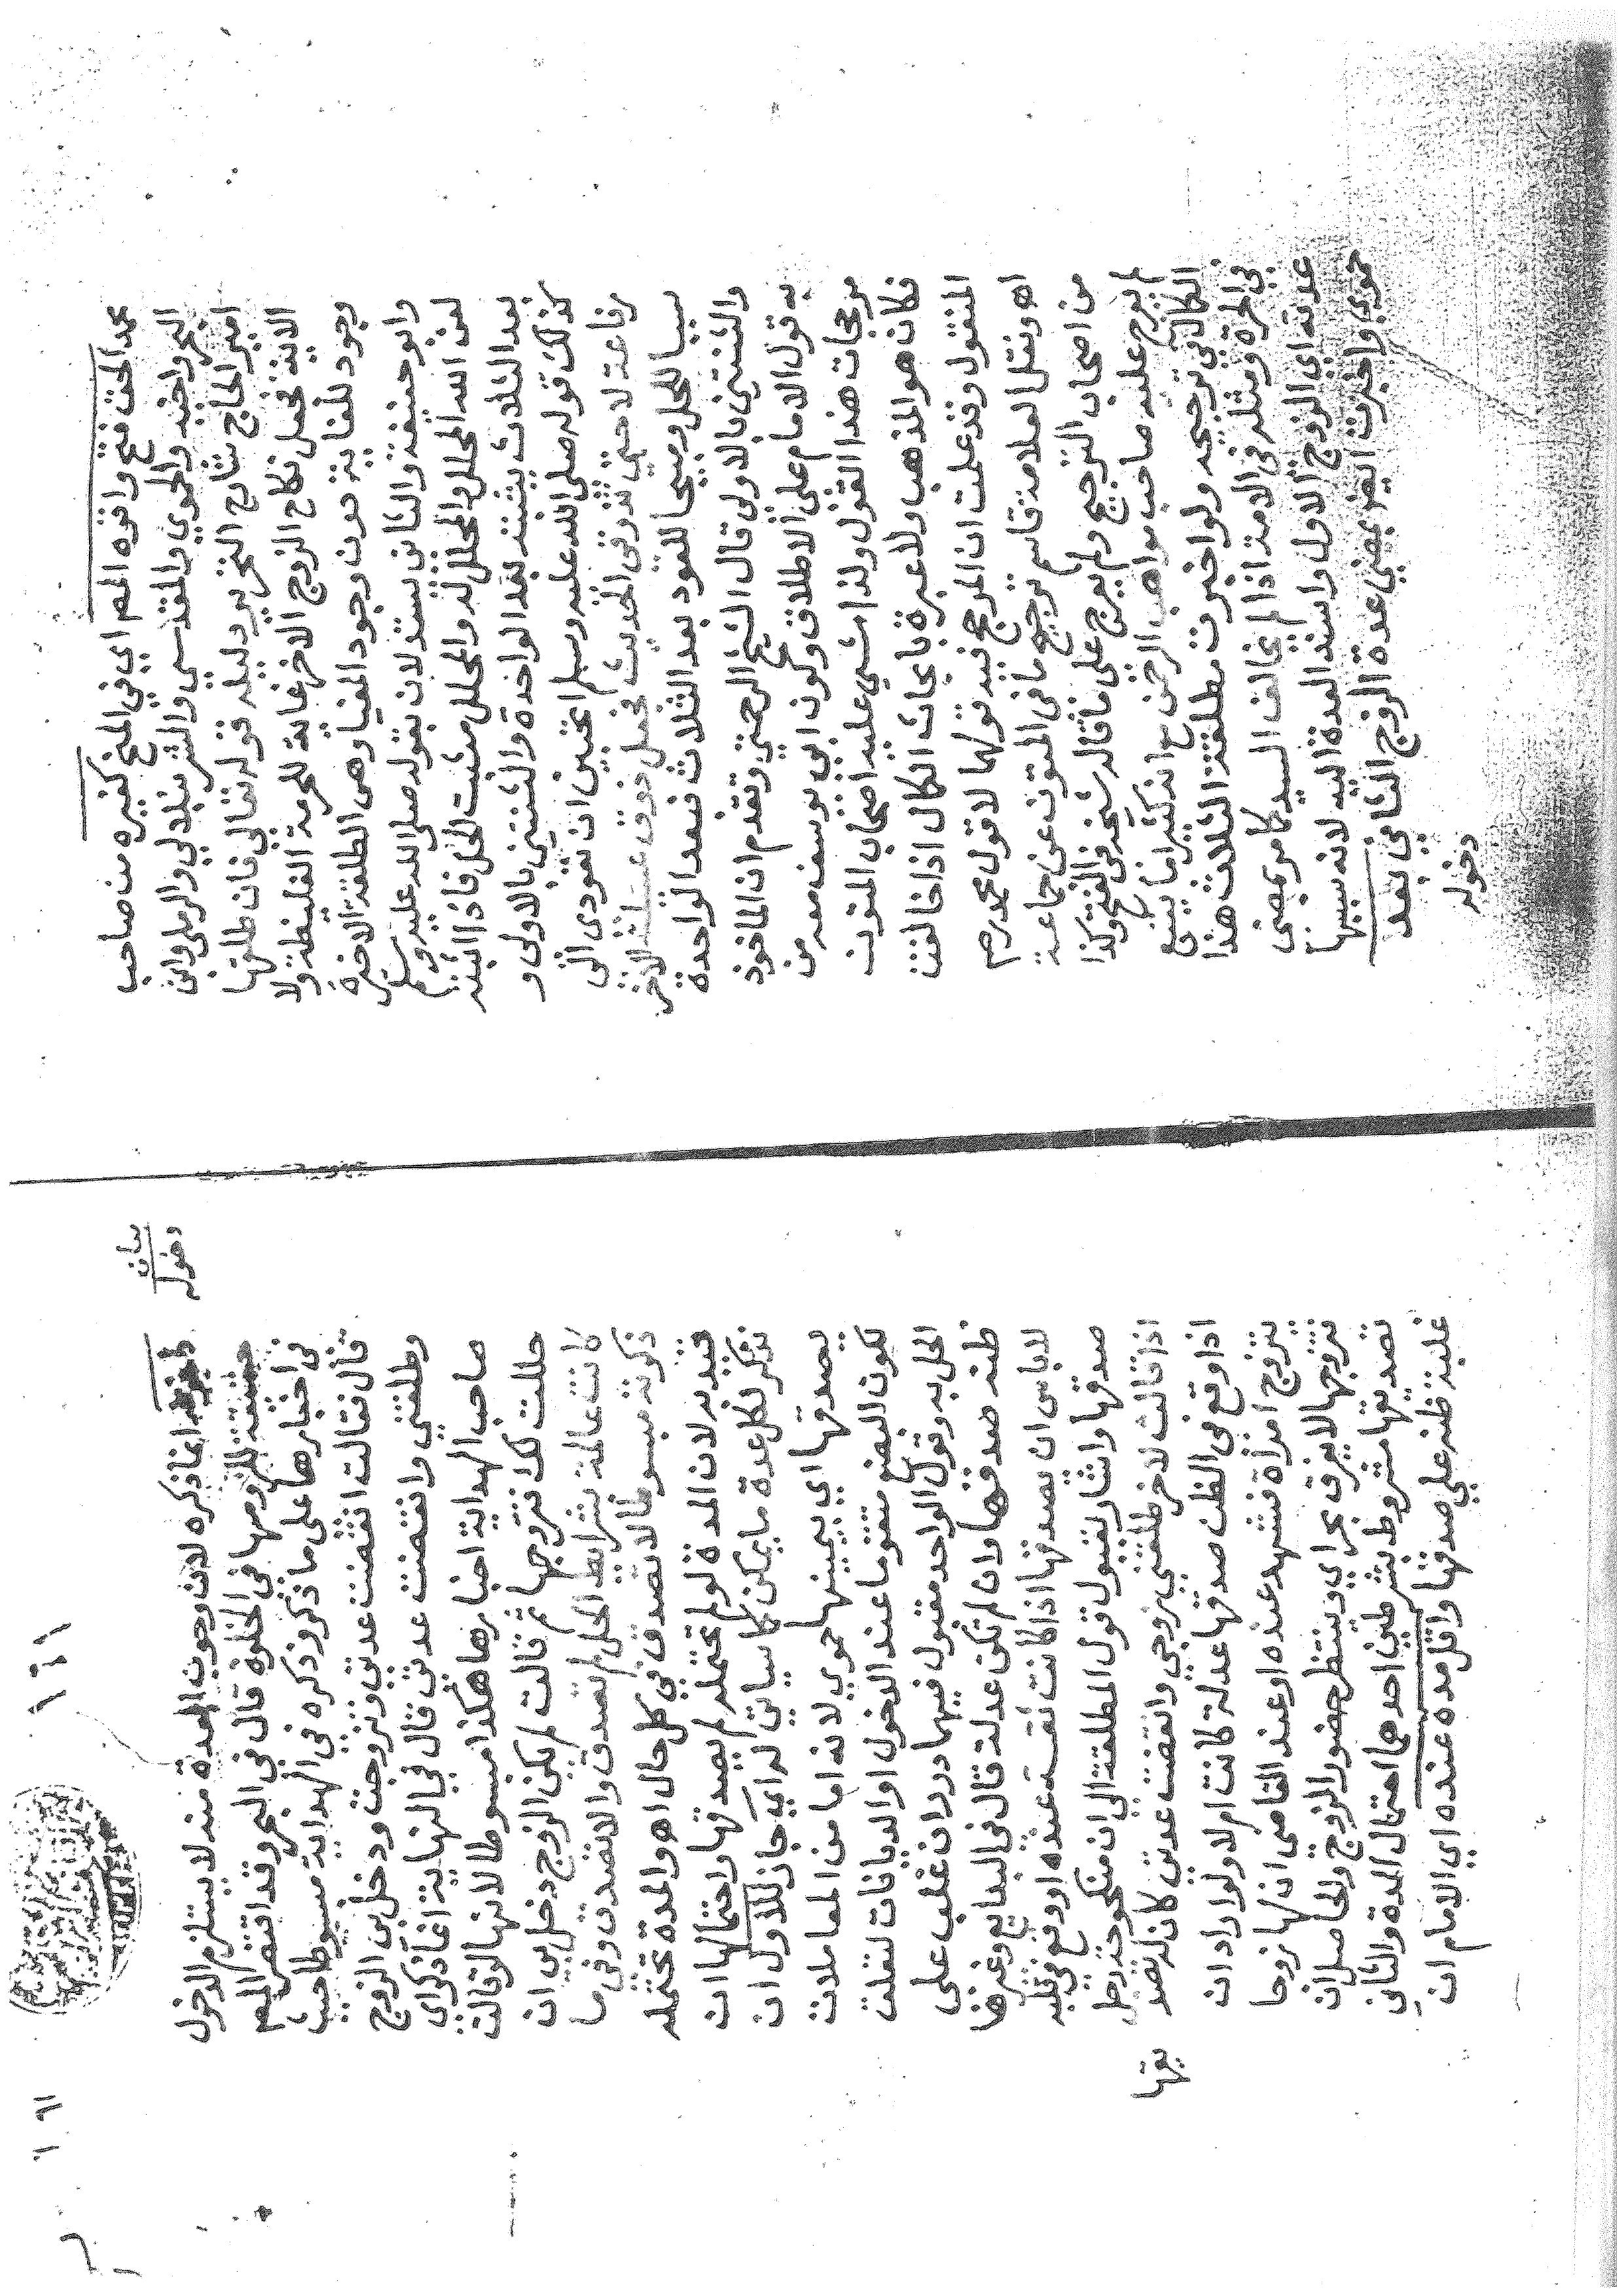 محمد الحق فتح واقره المص اي في المنح كغيره من صاحب
البحر واخيه والحموي والمقدسي والشرنبلالي والرملي وابن
امير الحاج شارح التحرير دليله قوله تعالى فان طلقها
الاية فجعل نكاح الزوج الاخر غاية للحرمة الغليظة ولا
وجود للغاية بدون وجود المغيا وهي الطلقة الاخيرة
وابو حنيفة والثاني يستدلان بقوله صلى الله عليه وسلم
لعن الله المحلل والمحلل له والمحلل مثبت للحل فاذا اثبته
بعد الثلاث يثبته بعد الواحدة والثنتين بالاولى و
كذلك قوله صلى الله عليه وسلم اتحبين ان تعودي الى
رفاعة لا حتى تذوقي الحديث فجعل ذوق عسيلة الاخر
سببا للحل ومبيحا للعود بعد الثلاث فبعد الواحدة
والثنتين بالاولى قال الشيخ الرحمتي وتقدم ان الماخوذ
به قول الامام على الاطلاق وكون ابي يوسف معه من
مرجحات هذا القول ولذا مشى عليه اصحاب المتون
فكان هو المذهب ولا عبرة بابحاث الكمال اذا خالفت
المنقول وقد علمت ان المرجح فيه قولهما لا قول محمد رحم
اه ونقل العلامة قاسم ترجيح ما في المتون عن جماعة
من اصحاب الترجيح ولم يعرج على ما قاله شيخه في الفتح وكذا
لم يعرج عليه صاحب مواهب الرحمن مع انه كثيرا ما يتبع
الكمال في ترجيحه ولو اخبرت مطلقة الثلاث هذا
في الحرة ومثله في الامة اذا لم يخالف السيد كما مر بمضي
عدته اي الزوج الاول واسند العدة اليه لانه سببها
حموي واخبرت ايضا بمضي عدة الزوج الثاني بعد
دخوله
بيان
دخوله
انما ذكره لان وجوب العدة منه لا يستلزم الدخول
حقيقة للزومها في الخلوة قال في البحر وقد اقتصر المص
في اخبارها على ما ذكر وذكره في الهداية مبسوطا حيث
قال فقالت انقضت عدتي وتزوجت ودخل بي الزوج
وطلقني وانقضت عدتي قال في النهاية انما ذكر اي
صاحب الهداية اخبارها هكذا مبسوطا لانها لو قالت
حللت لك فتزوجها ثم قالت لم يكن الزوج دخل بي ان
كانت عالمة بشرايط الحل لم تصدق والا تصدق وفي ما
ذكرته مبسوطا لا تصدق في كل حال اه والمدة تحتمله
قيد به لان المدة لو لم تحتمله لم يصدقها واحتمالها ان
تذكر لكل عدة ما يمكن كما سياتي له اي جاز للاول ان
يصدقها اي بيمينها حموي لانه اما من المعاملات
لكون البضع متقوما عند الدخول او الديانات لتعلق
الحل به وقول الواحد مقبول فيهما درر ان غلب على
ظنه صدقها وان لم تكن عدلة قال في البدايع وغيرها
لا باس ان يصدقها اذا كانت ثقة عنده او وقع في قلبه
صدقها واشار بقبول قول المطلقة الى ان منكوحة رجل
اذا قالت لاخر طلقني زوجي وانقضت عدتي كان له تصد يقها
اذا وقع في الظن صدقها عدلة كانت ام لا ولو اراد ان
يتزوج امراة فشهد عنده او عند القاضي ان لها زوجا
تزوجها لا يفرق بحر اي وينتظر حضور الزوج والحاصل ان
تصديقها مشروط بشرطين احدهما احتمال المدة والثاني
غلبة ظنه على صدقها واقل مدة عنده اي الامام ان